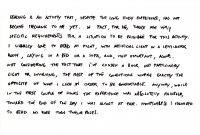 READING IS AN ACTIVITY THAT, DESPITE THE LONG TIME EXPERIENCE, HAS NOT
BECOME TO ME YET. IN FACT, FOR ME, THERE ARE VERY
SPECIFIC REQUIREMENTS FOR A SITUATION TO BE FOR THIS ACTIVITY.
I USUALLY LIKE TO READ AT NIGHT, WITH ARTIFICIAL LIGHT IN A
ROOM, IN A BED OR A SOFA, AND, MOST IMPORTANT, ALONE.
NOT CONSIDERING THE FACT THAT I'VE CHOSEN A BOOK NOT PARTICULARLY
LIGHT OR , THE REST OF THE CONDITIONS WERE EXACTLY THE
OPPOSITE OF WHAT I LOOK IN ORDER TO BE COMFORTABLE. ANYWAY, WHILE
IN THE FIRST COUPLE OF HOURS THE EXPERIENCE WAS NEGATIVE,
TOWARD THE END OF THE DAY I WAS ALMOST AT EASE. I MANAGED
TO READ NO MORE THAN PAGES.